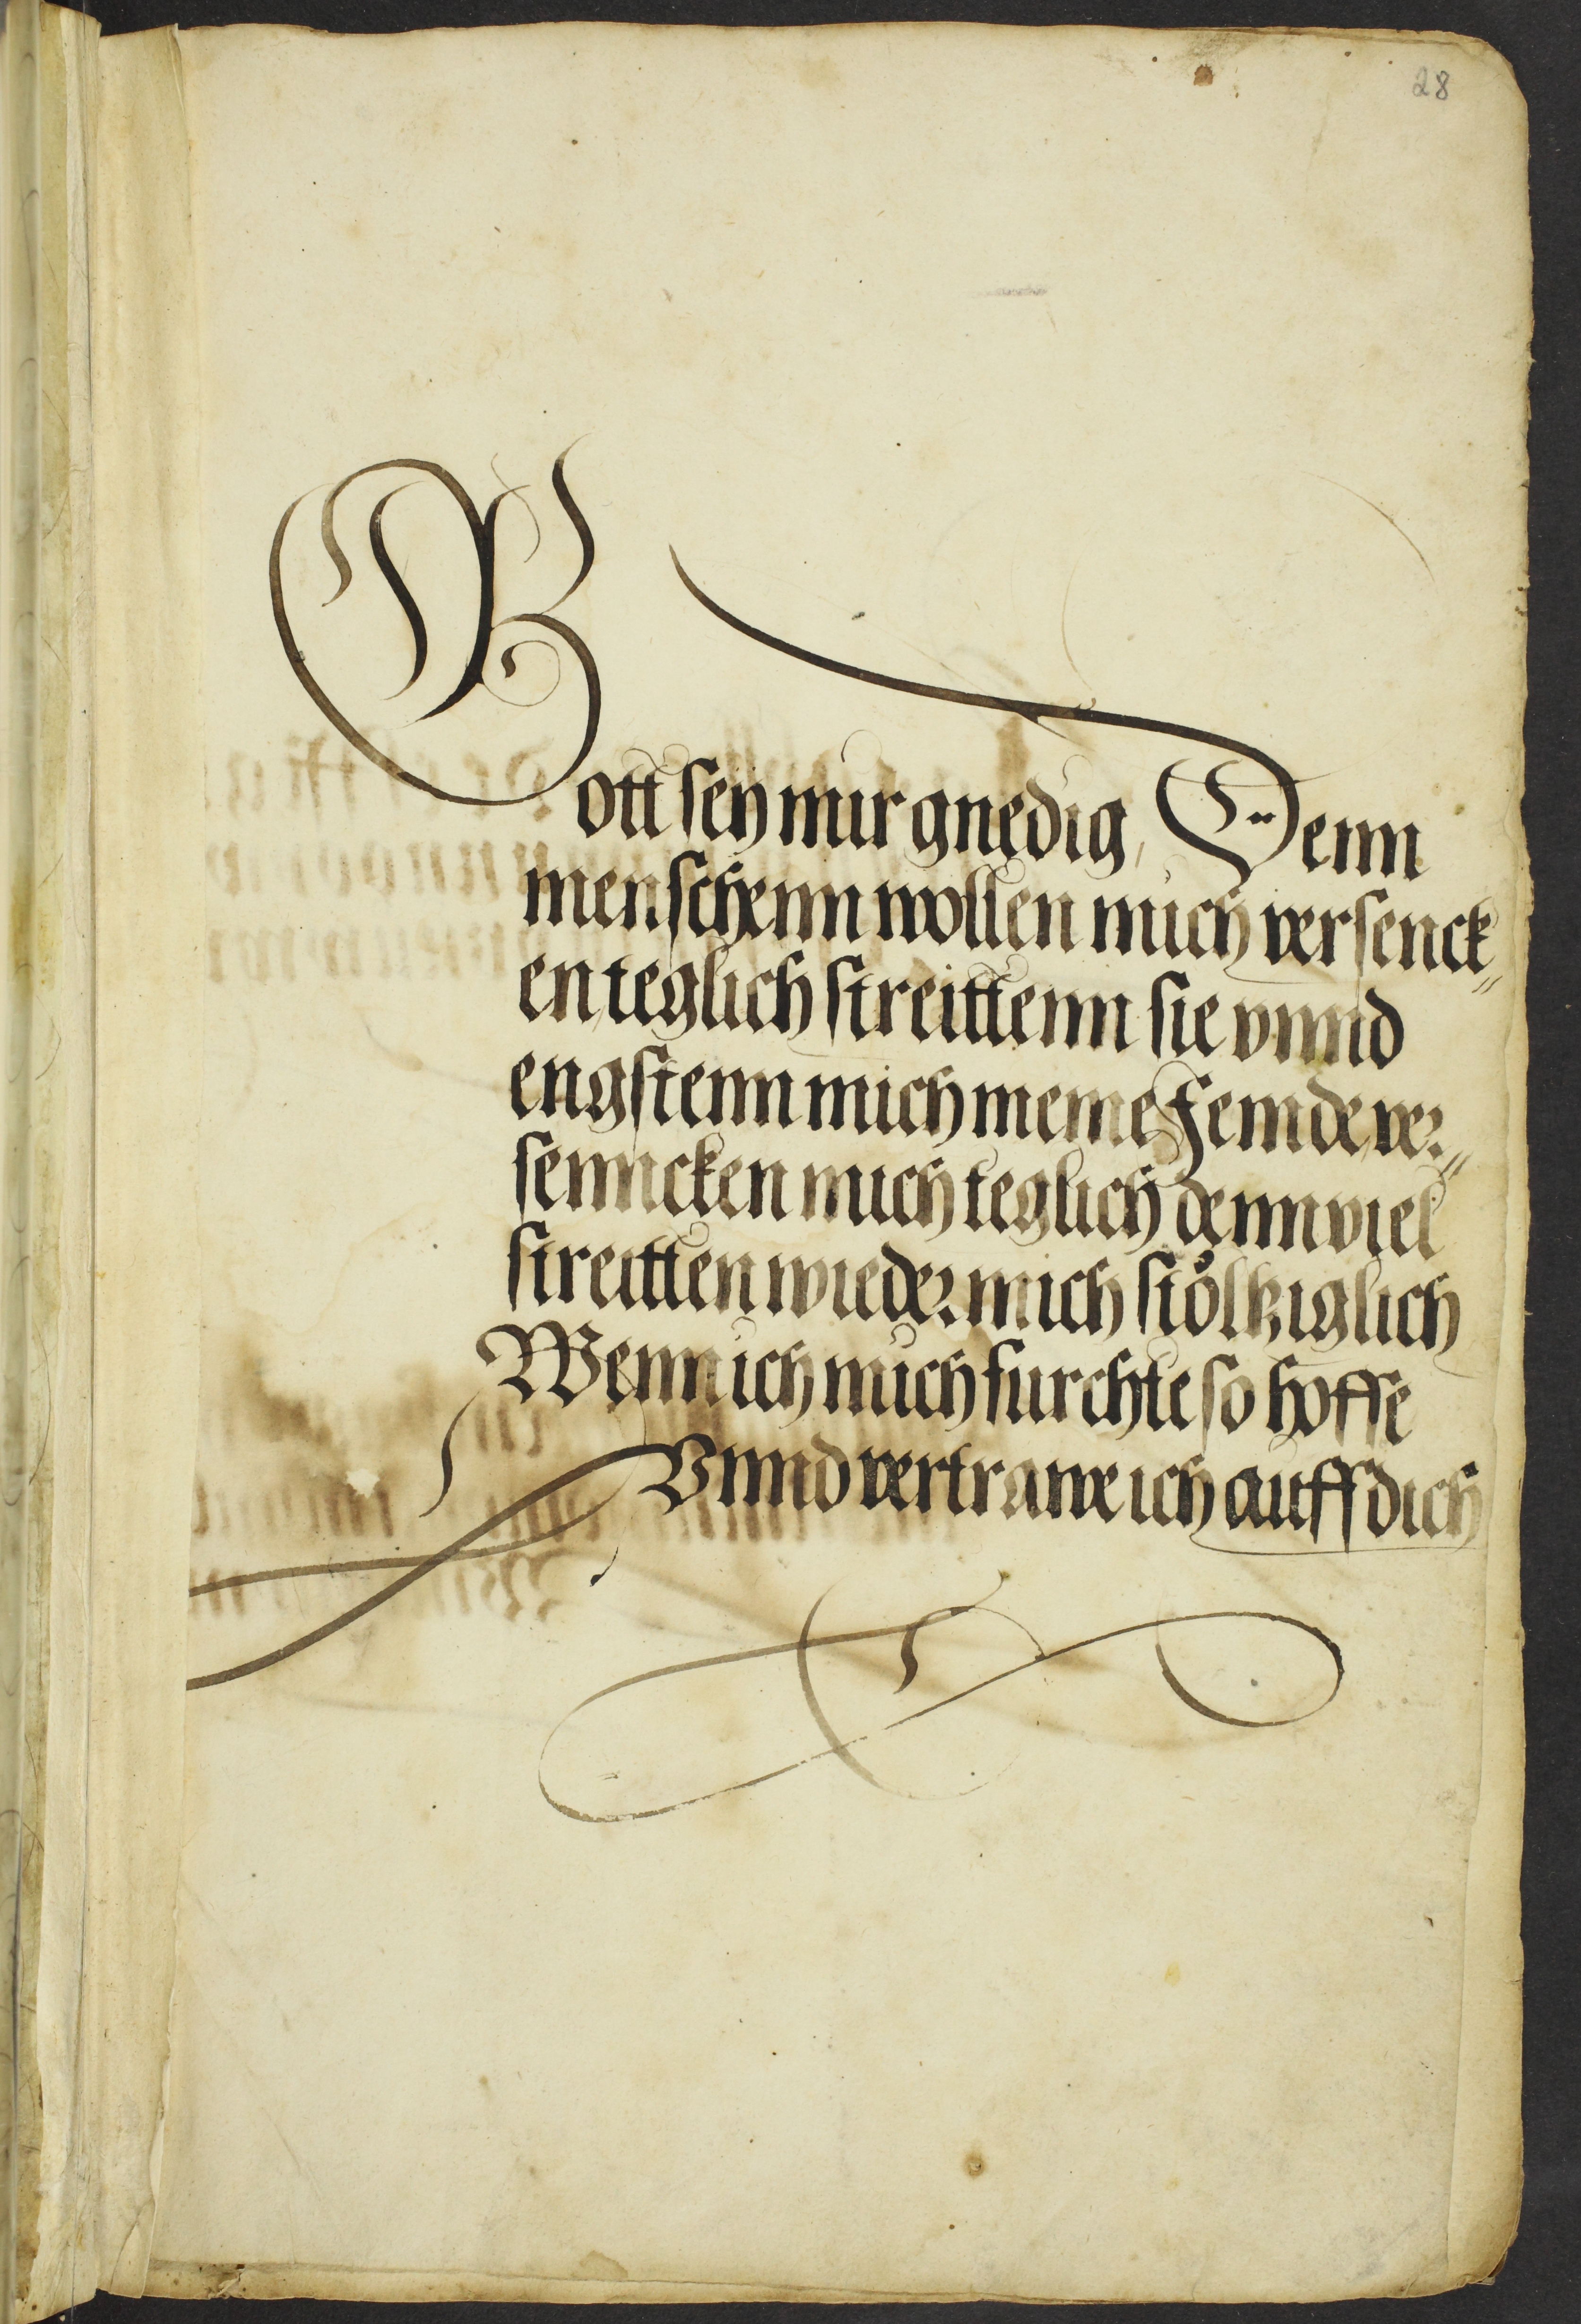 28
Gott seÿ mir gnedig, Denn
menschenn wollen mich versenck„
en, teglich streittenn sie vnnd
engstenn mich meine Feinde ver„
senncken mich teglich denn viel
streitten wieder mich stöltziglich
Wenn ich mich furchte so hoffe
Vnnd vertrawe ich auff dich